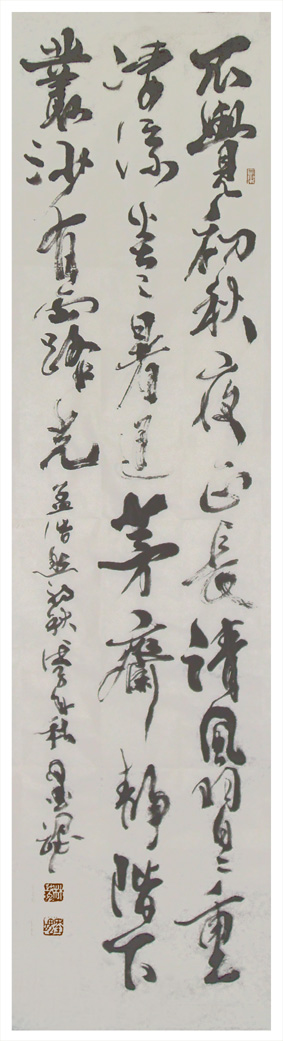 不覺初秋夜正長清風習々重
淒涼炎々暑退茅齋靜階下
叢沙有露光 孟浩然初秋